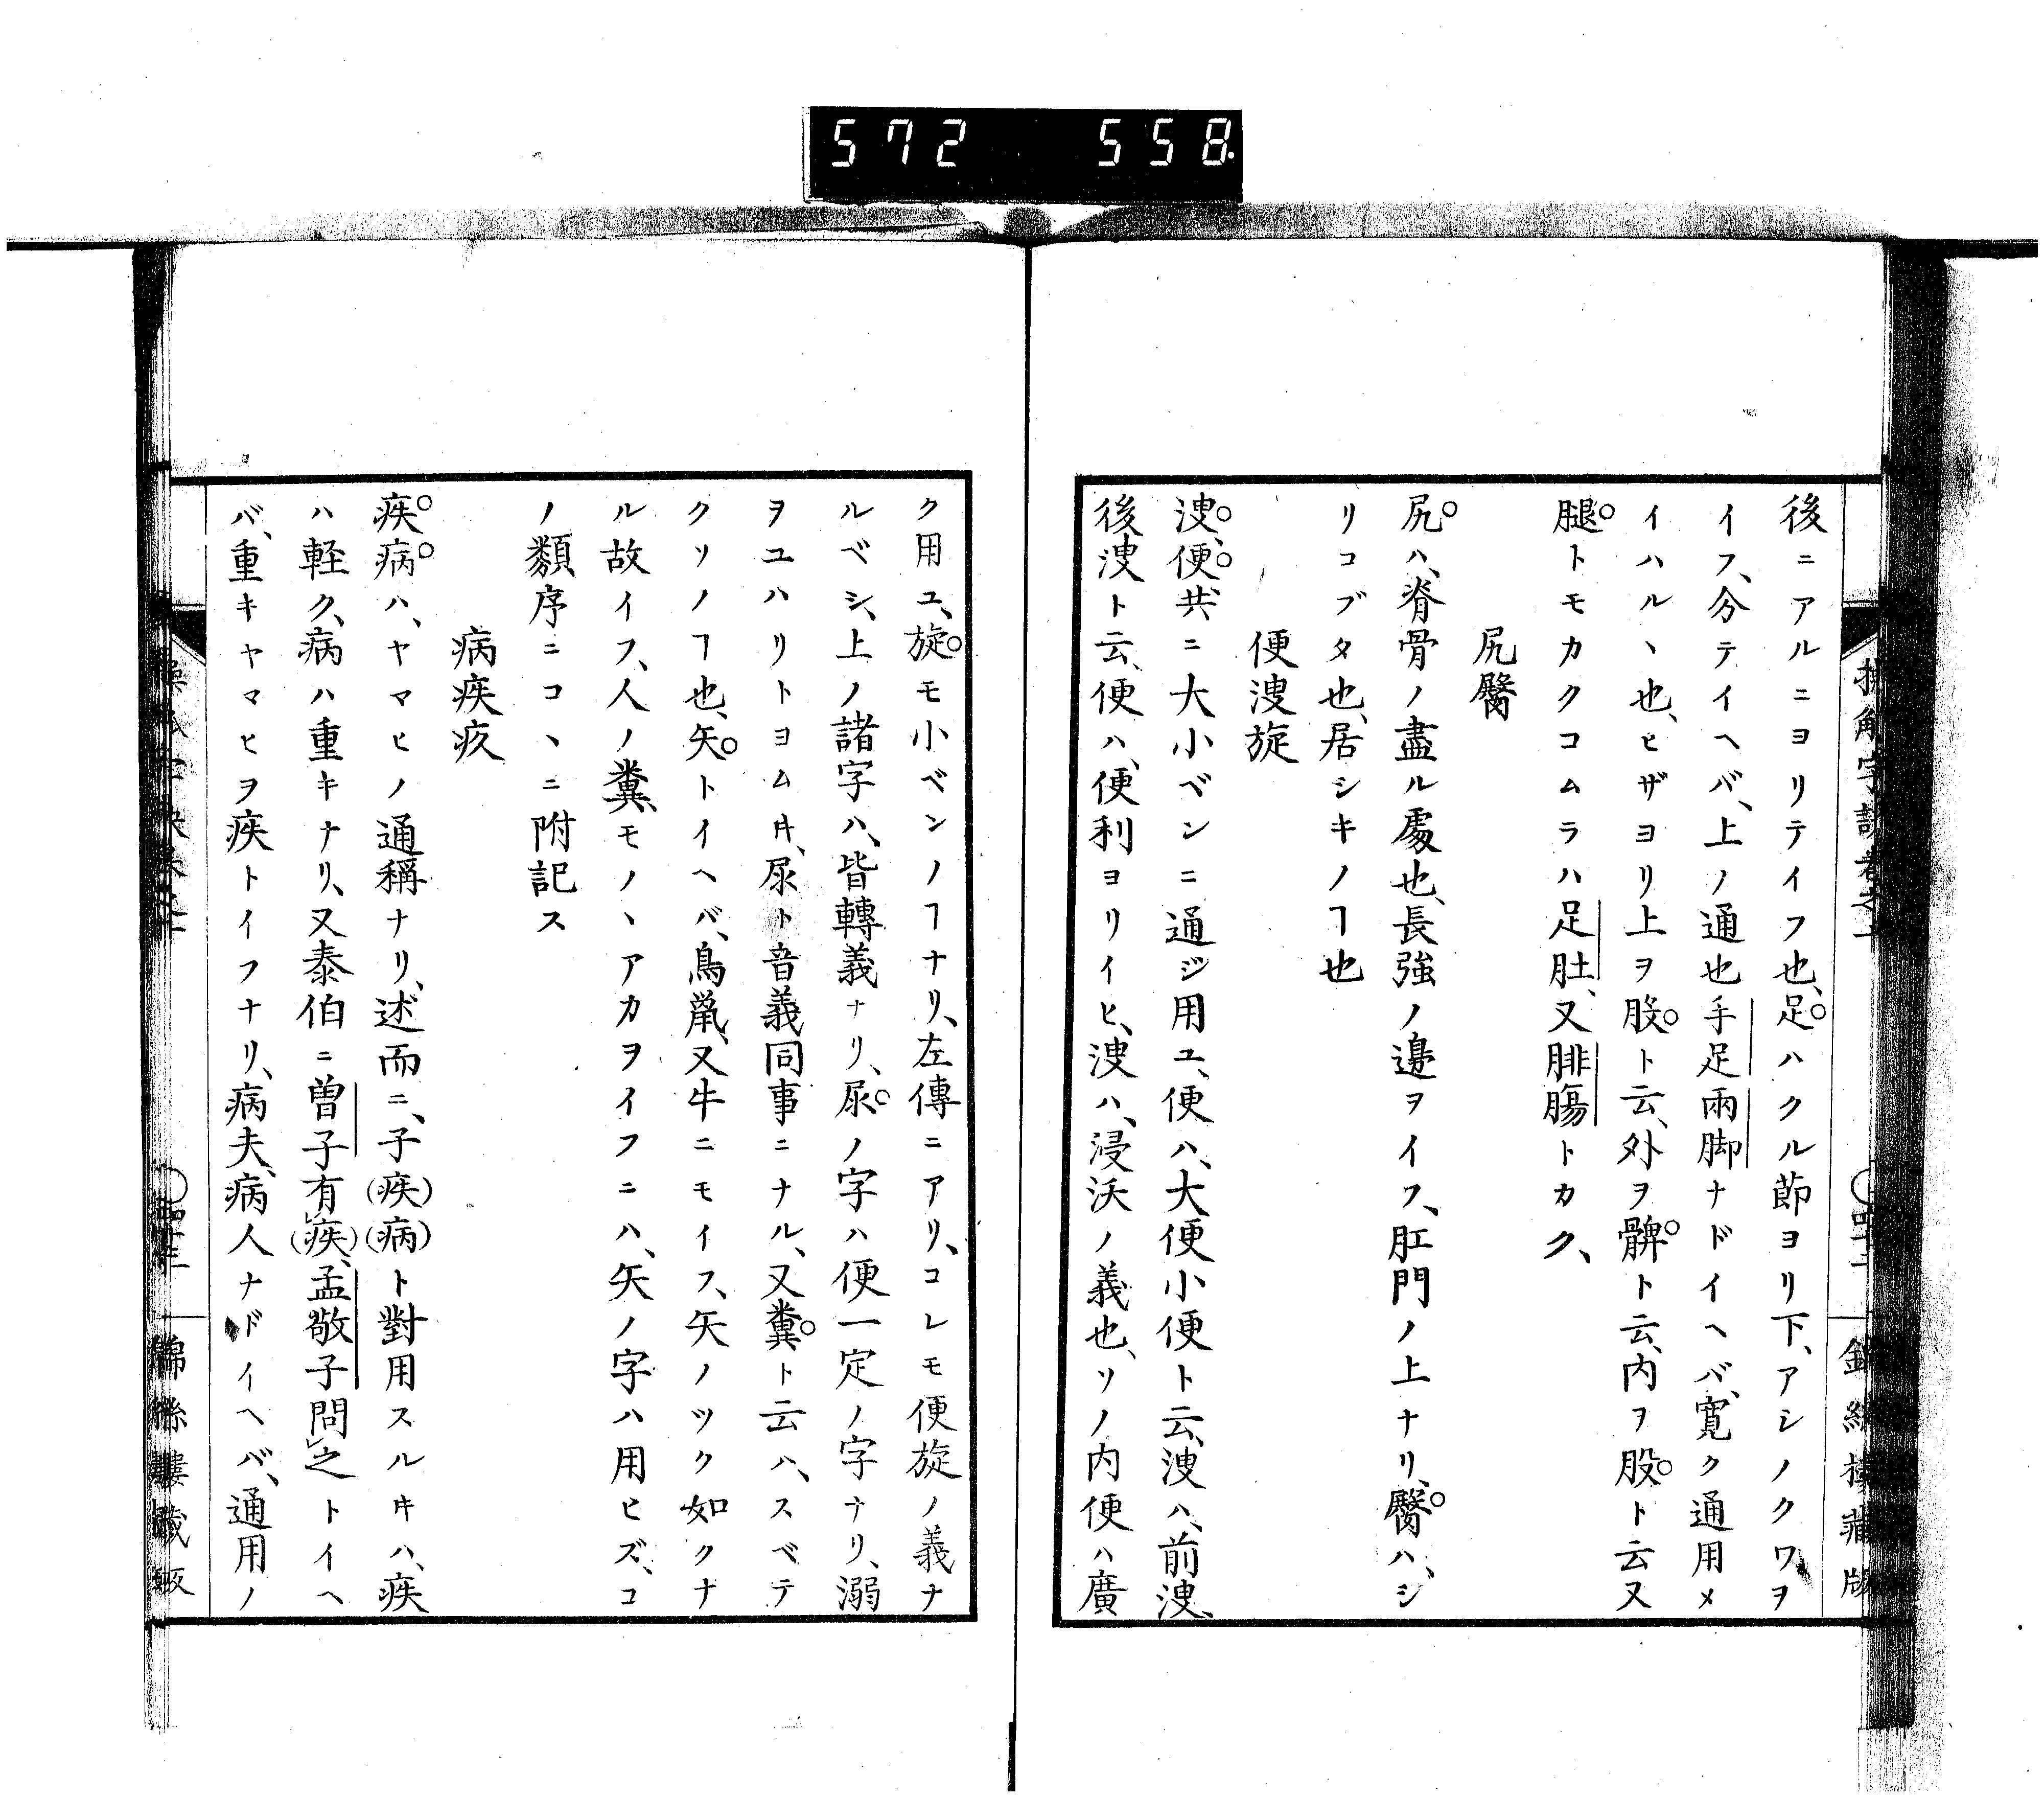 572 558
後ニアルニヨリテイフ也、足ハクル節ヨリ下、アシノクワヲ
イフ、分テイヘバ、上ノ通也手足兩脚ナドイヘバ、寛ク通用メ
イハルヽ也、ヒザヨリ上ヲ股ト云、外ヲ髀ト云、内ヲ股ト云又
腿トモカクコムラハ足肚、又腓腸トカク、
尻臀
尻ハ、脊骨ノ盡ル處也、長強ノ邊ヲイフ、肛門ノ上ナリ、臀ハ、ジ
リコブタ也、居シキノヿ也
便溲旋
溲、便、共ニ大小ベンニ通ジ用ユ、便ハ、大便小便ト云、溲ハ、前溲、
後溲ト云、便ハ、便利ヨリイヒ、溲ハ、浸沃ノ義也、ソノ内便ハ廣
ク用ユ、旋モ小ベンノヿナリ、左傳ニアリ、コレモ便旋ノ義ナ
ルベシ、上ノ諸字ハ、皆轉義ナリ、尿ノ字ハ便一定ノ字ナリ、溺
ヲユハリトヨムヰ、尿ト音義同事ニナル、又糞ト云ハ、スベテ
クソノヿ也、矢トイヘバ、鳥鼠、又牛ニモイフ、矢ノツク如クナ
ル故イフ、人ノ糞、モノヽアカヲイフニハ、矢ノ字ハ用ヒズ、コ
ノ纇序ニコヽニ附記ス
病疾疚
疾病ハ、ヤマヒノ通稱ナリ、述而ニ、子(疾)(病)ト對用スルキハ、疾
ハ軽ク、病ハ重キナリ、又泰伯ニ曽子有(疾)、孟敬子問之トイヘ
バ、重キヤマヒヲ疾トイフナリ、病夫、病人ナドイヘバ、通用ノ